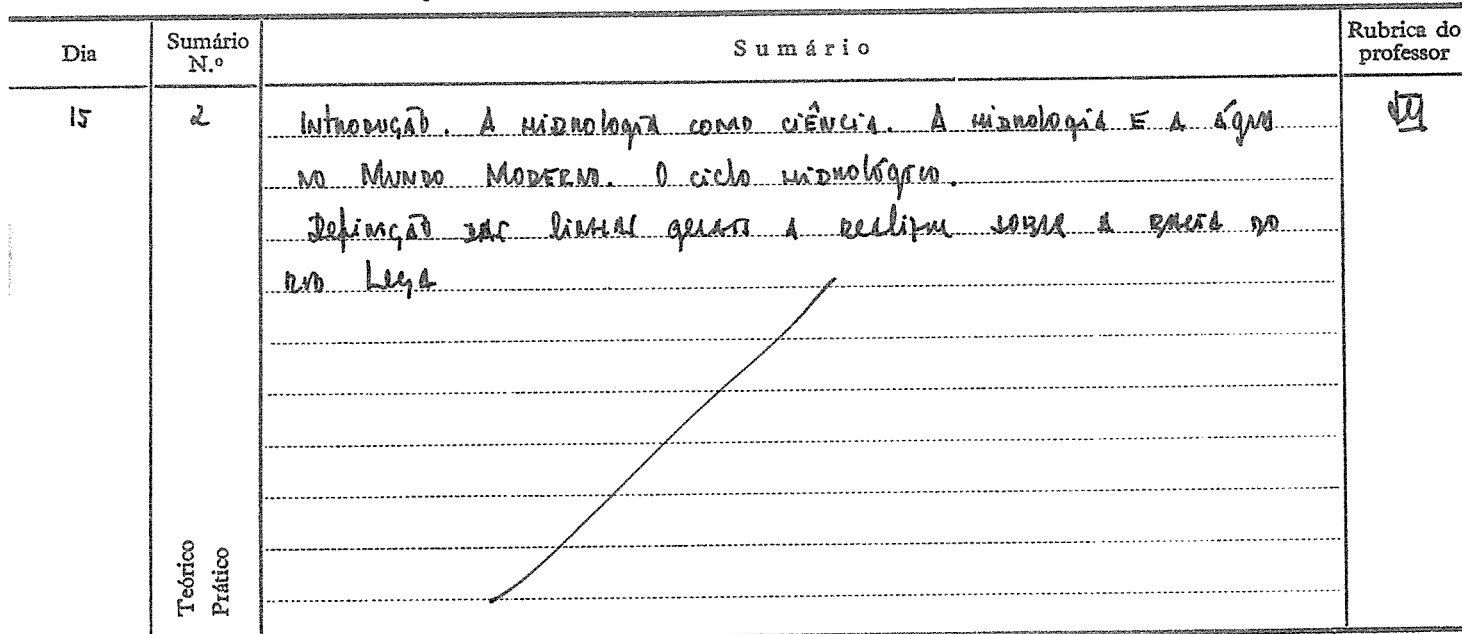 Dia Sumário N.º Sumário Rubrica do professor
15 2 Introdução. A hidrologia como ciência. A hidrologia e a água
no Mundo Moderno. O ciclo hidrológico.
Definição das linhas gerais a realizar sobre a bacia do
rio Leça
Teórico
Prático